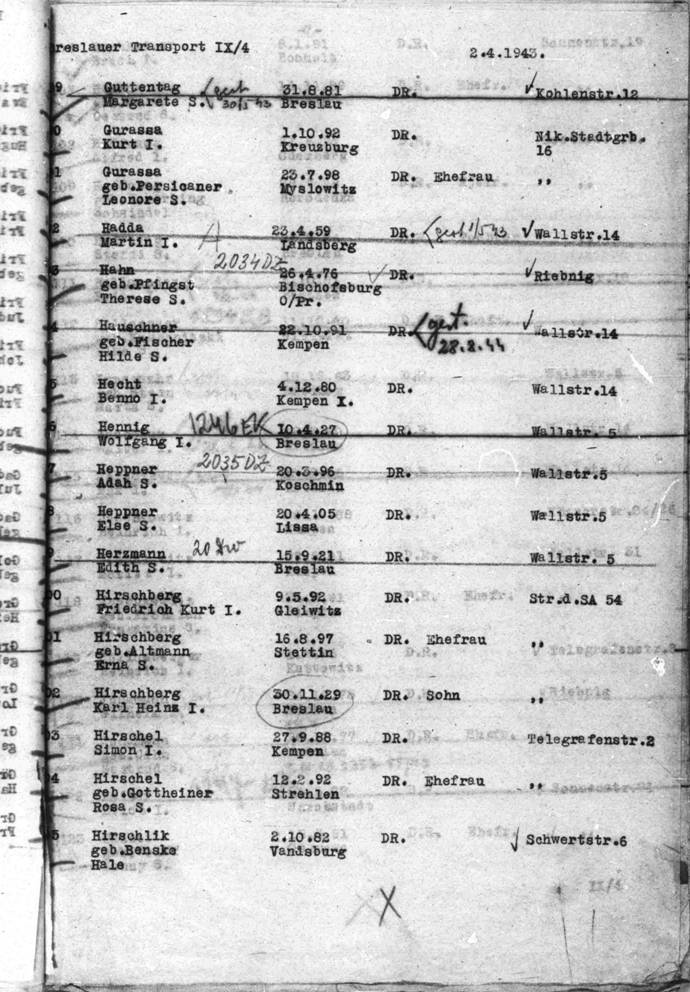 reslauer Transport IX/4 2.4.1943.
9 Guttentag gest 31.8.81 DR. Kohlenstr.12
Margarete S. Breslau
0 Gurassa 1.10.92 DR. Nik.Stadtgrb.
Kurt I. Kreuzburg 16
1 Gurassa 23.7.98 DR. Ehefrau ,,
geb.Persicaner Myslowitz
Leonore S.
2 Hadda 23.4.59 DR. gest 1/5 43 Wallstr.14
Martin I. Landsberg
2034DZ
3 Hahn 26.4.76 DR. Riebnig
geb.Pfingst Bischofsburg
Therese S. O/Pr.
4 Hauschner 22.10.91 DR. gest. Wallstr.14
geb.Fischer Kempen 28.2.44
Hilde S.
5 Hecht 4.12.80 DR. Wallstr.14
Benno I. Kempen X.
6 Hennig 1246EK 10.4.27 DR. Wallstr. 5
Wolfgang I. Breslau
2035DZ
7 Heppner 20.3.96 DR. Wallstr.5
Adah S. Koschmin
8 Heppner 20.4.05 DR. Wallstr.5
Else S. Lissa
9 Herzmann 15.9.21 DR. Wallstr. 5
Edith S. Breslau
00 Hirschberg 9.5.92 DR. Str.d.SA 54
Friedrich Kurt I. Gleiwitz
01 Hirschberg 16.8.97 DR. Ehefrau ,,
geb.Altmann Stettin
Erna S.
02 Hirschberg 30.11.29 DR. Sohn ,,
Karl Heinz I. Breslau
03 Hirschel 27.9.88 DR. Telegrafenstr.2
Simon I. Kempen
4 Hirschel 12.2.92 DR. Ehefrau ,,
geb.Gottheiner Strehlen
Rosa S.
5 Hirschlik 2.10.82 DR. Schwertstr.6
geb.Benske Vandsburg
Hale
X